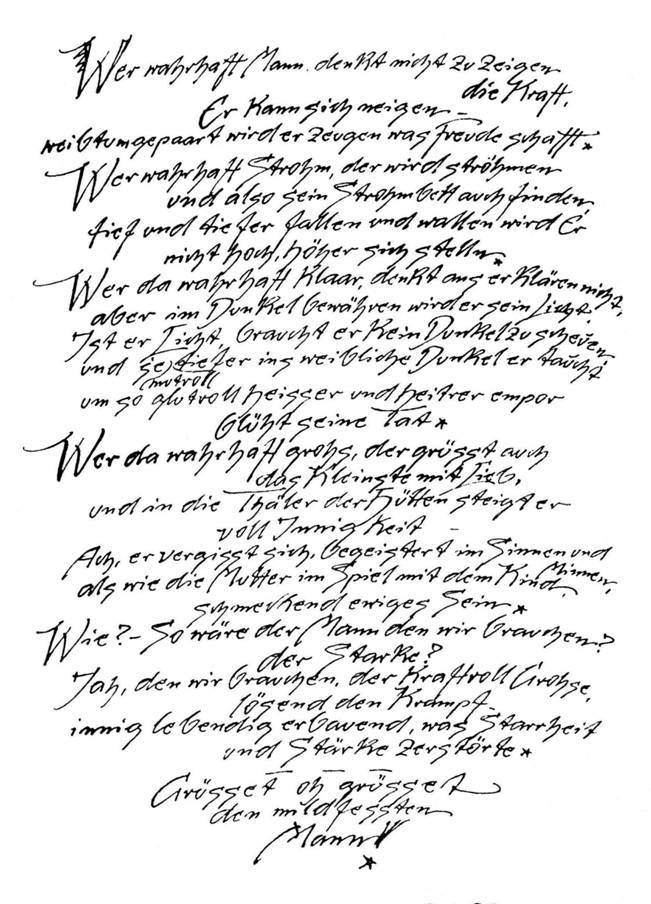 Wer wahrhaft Mann. denkt nicht zu zeigen
die Kraft,
Er kann sich neigen –
weibtumgepaart wird er zeugen was Freude schafft*
Wer wahrhaft Strohm, der wird ströhmen
und also sein Strohmbett auch finden,
tief und tiefer fallen und wallen wird Er
nicht hoch, höher sich stelln*
Wer da wahrhaft klaar, denkt ans erklären nicht,
aber im Dunkel bewähren wird er sein Licht.
Ist er Licht, braucht er kein Dunkel zu scheuen
und je tiefer ins weibliche Dunkel er taucht
mutvoll
um so glutvoll heisser und heitrer empor
blüht seine Tat*
Wer da wahrhaft grohs, der grüsst auch
das Kleinste mit Lieb,
und in die Thäler der Hütten steigt er
voll Innigkeit –
Ach, er vergisst sich, begeistert im Sinnen und
Minnen,
als wie die Mutter im Spiel mit dem Kind,
schmeckend ewiges Sein*
Wie? – So wäre der Mann den wir brauchen?
der Starke?
Jah, den wir brauchen, der kraftvoll Grohse,
lösend den Krampf
innig lebendig erbauend, was Starrheit
und Stärke zerstörte*
Grüsset oh grüsset
den mildfessten
Mann
*